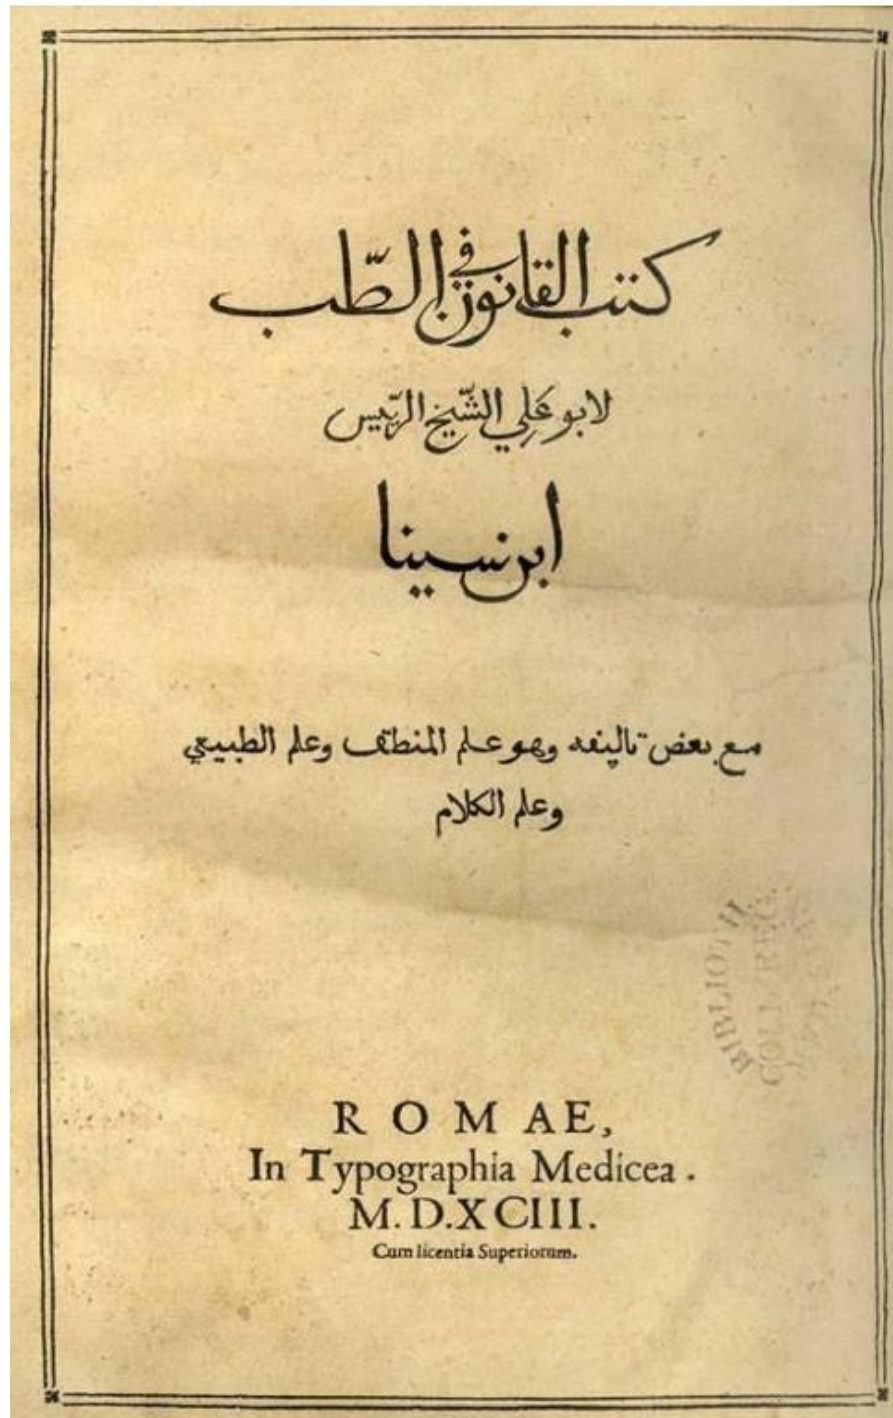 كتب القانون في الطّب
لابو عَلِي الشّيخ الرّئيس
ابن سينا
مع بعض تاليفه وهو علم المنطق وعلم الطبيعي
وعلم الكلام
BIBLIOTH.
COLL. REG.
ROMAE,
In Typographia Medicea.
M. D. XCIII.
Cum licentia Superiorum.